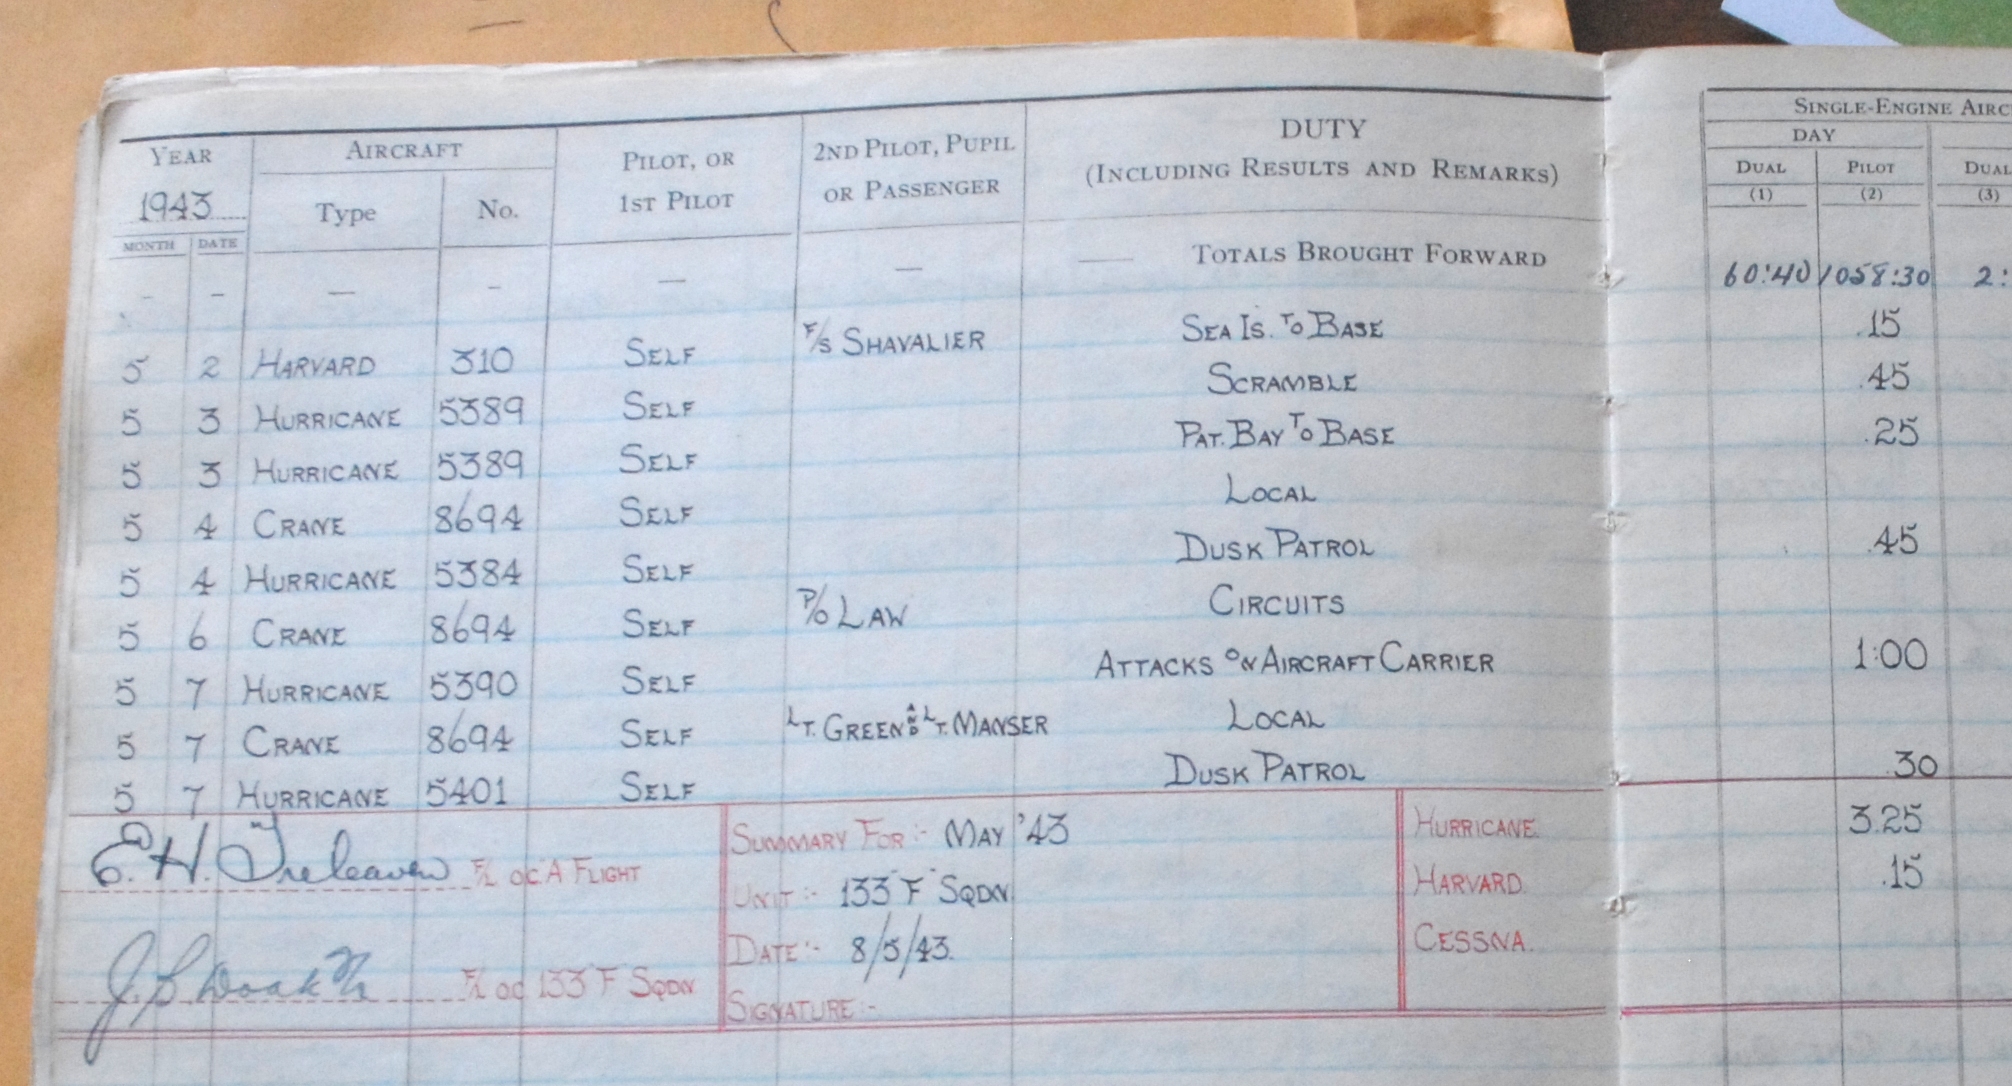 YEAR AIRCRAFT PILOT, OR 2ND PILOT, PUPIL DUTY SINGLE-ENGINE AIRC
1943 Type No. 1ST PILOT OR PASSENGER (INCLUDING RESULTS AND REMARKS) DAY
MONTH DATE DUAL PILOT DUAL
(1) (2) (3)
— — — — — — —— TOTALS BROUGHT FORWARD 60:40 1058:30 2:
5 2 HARVARD 310 SELF F/S SHAVALIER SEA IS. TO BASE .15
5 3 HURRICANE 5389 SELF SCRAMBLE .45
5 3 HURRICANE 5389 SELF PAT. BAY TO BASE .25
5 4 CRANE 8694 SELF LOCAL
5 4 HURRICANE 5384 SELF DUSK PATROL .45
5 6 CRANE 8694 SELF P/O LAW CIRCUITS
5 7 HURRICANE 5390 SELF ATTACKS ON AIRCRAFT CARRIER 1:00
5 7 CRANE 8694 SELF LT. GREEN AND LT. MANSER LOCAL
5 7 HURRICANE 5401 SELF DUSK PATROL .30
E. H. Treleaven F/L OC "A" FLIGHT SUMMARY FOR:- MAY '43 HURRICANE. 3.25
UNIT:- 133 "F" SQDN HARVARD. .15
DATE:- 8/5/43. CESSNA.
F/L OC 133 "F" SQDN SIGNATURE:-